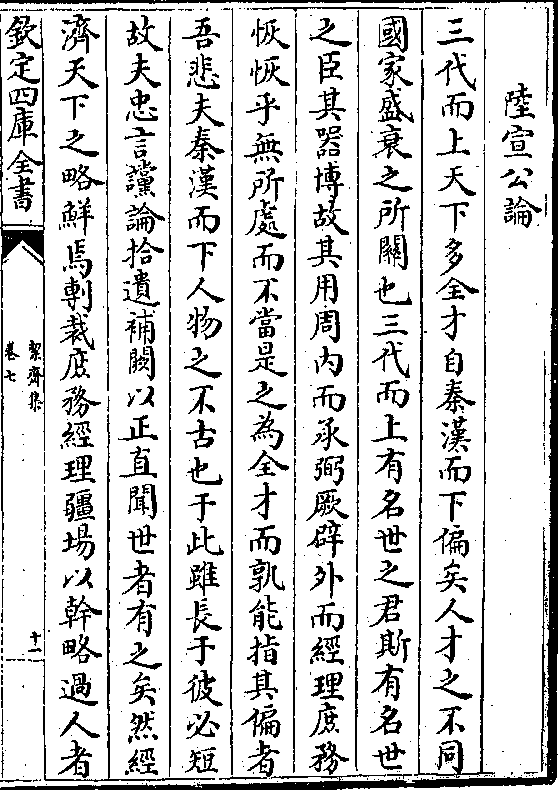 陸宣公論
三代而上天下多全才自秦漢而下偏矣人才之不同
國家盛衰之所關也三代而上有名世之君斯有名世
之臣其器博故其用周内而承弼厥辟外而經理庶務
恢恢乎無所處而不當是之為全才而孰能指其偏者
吾悲夫秦漢而下人物之不古也于此雖長于彼必短
故夫忠言讜論拾遺補闕以正直聞世者有之矣然經
濟天下之略鮮焉剸裁庶務經理疆場以幹略過人者
欽定四庫全書
絜齋集
卷七
十一